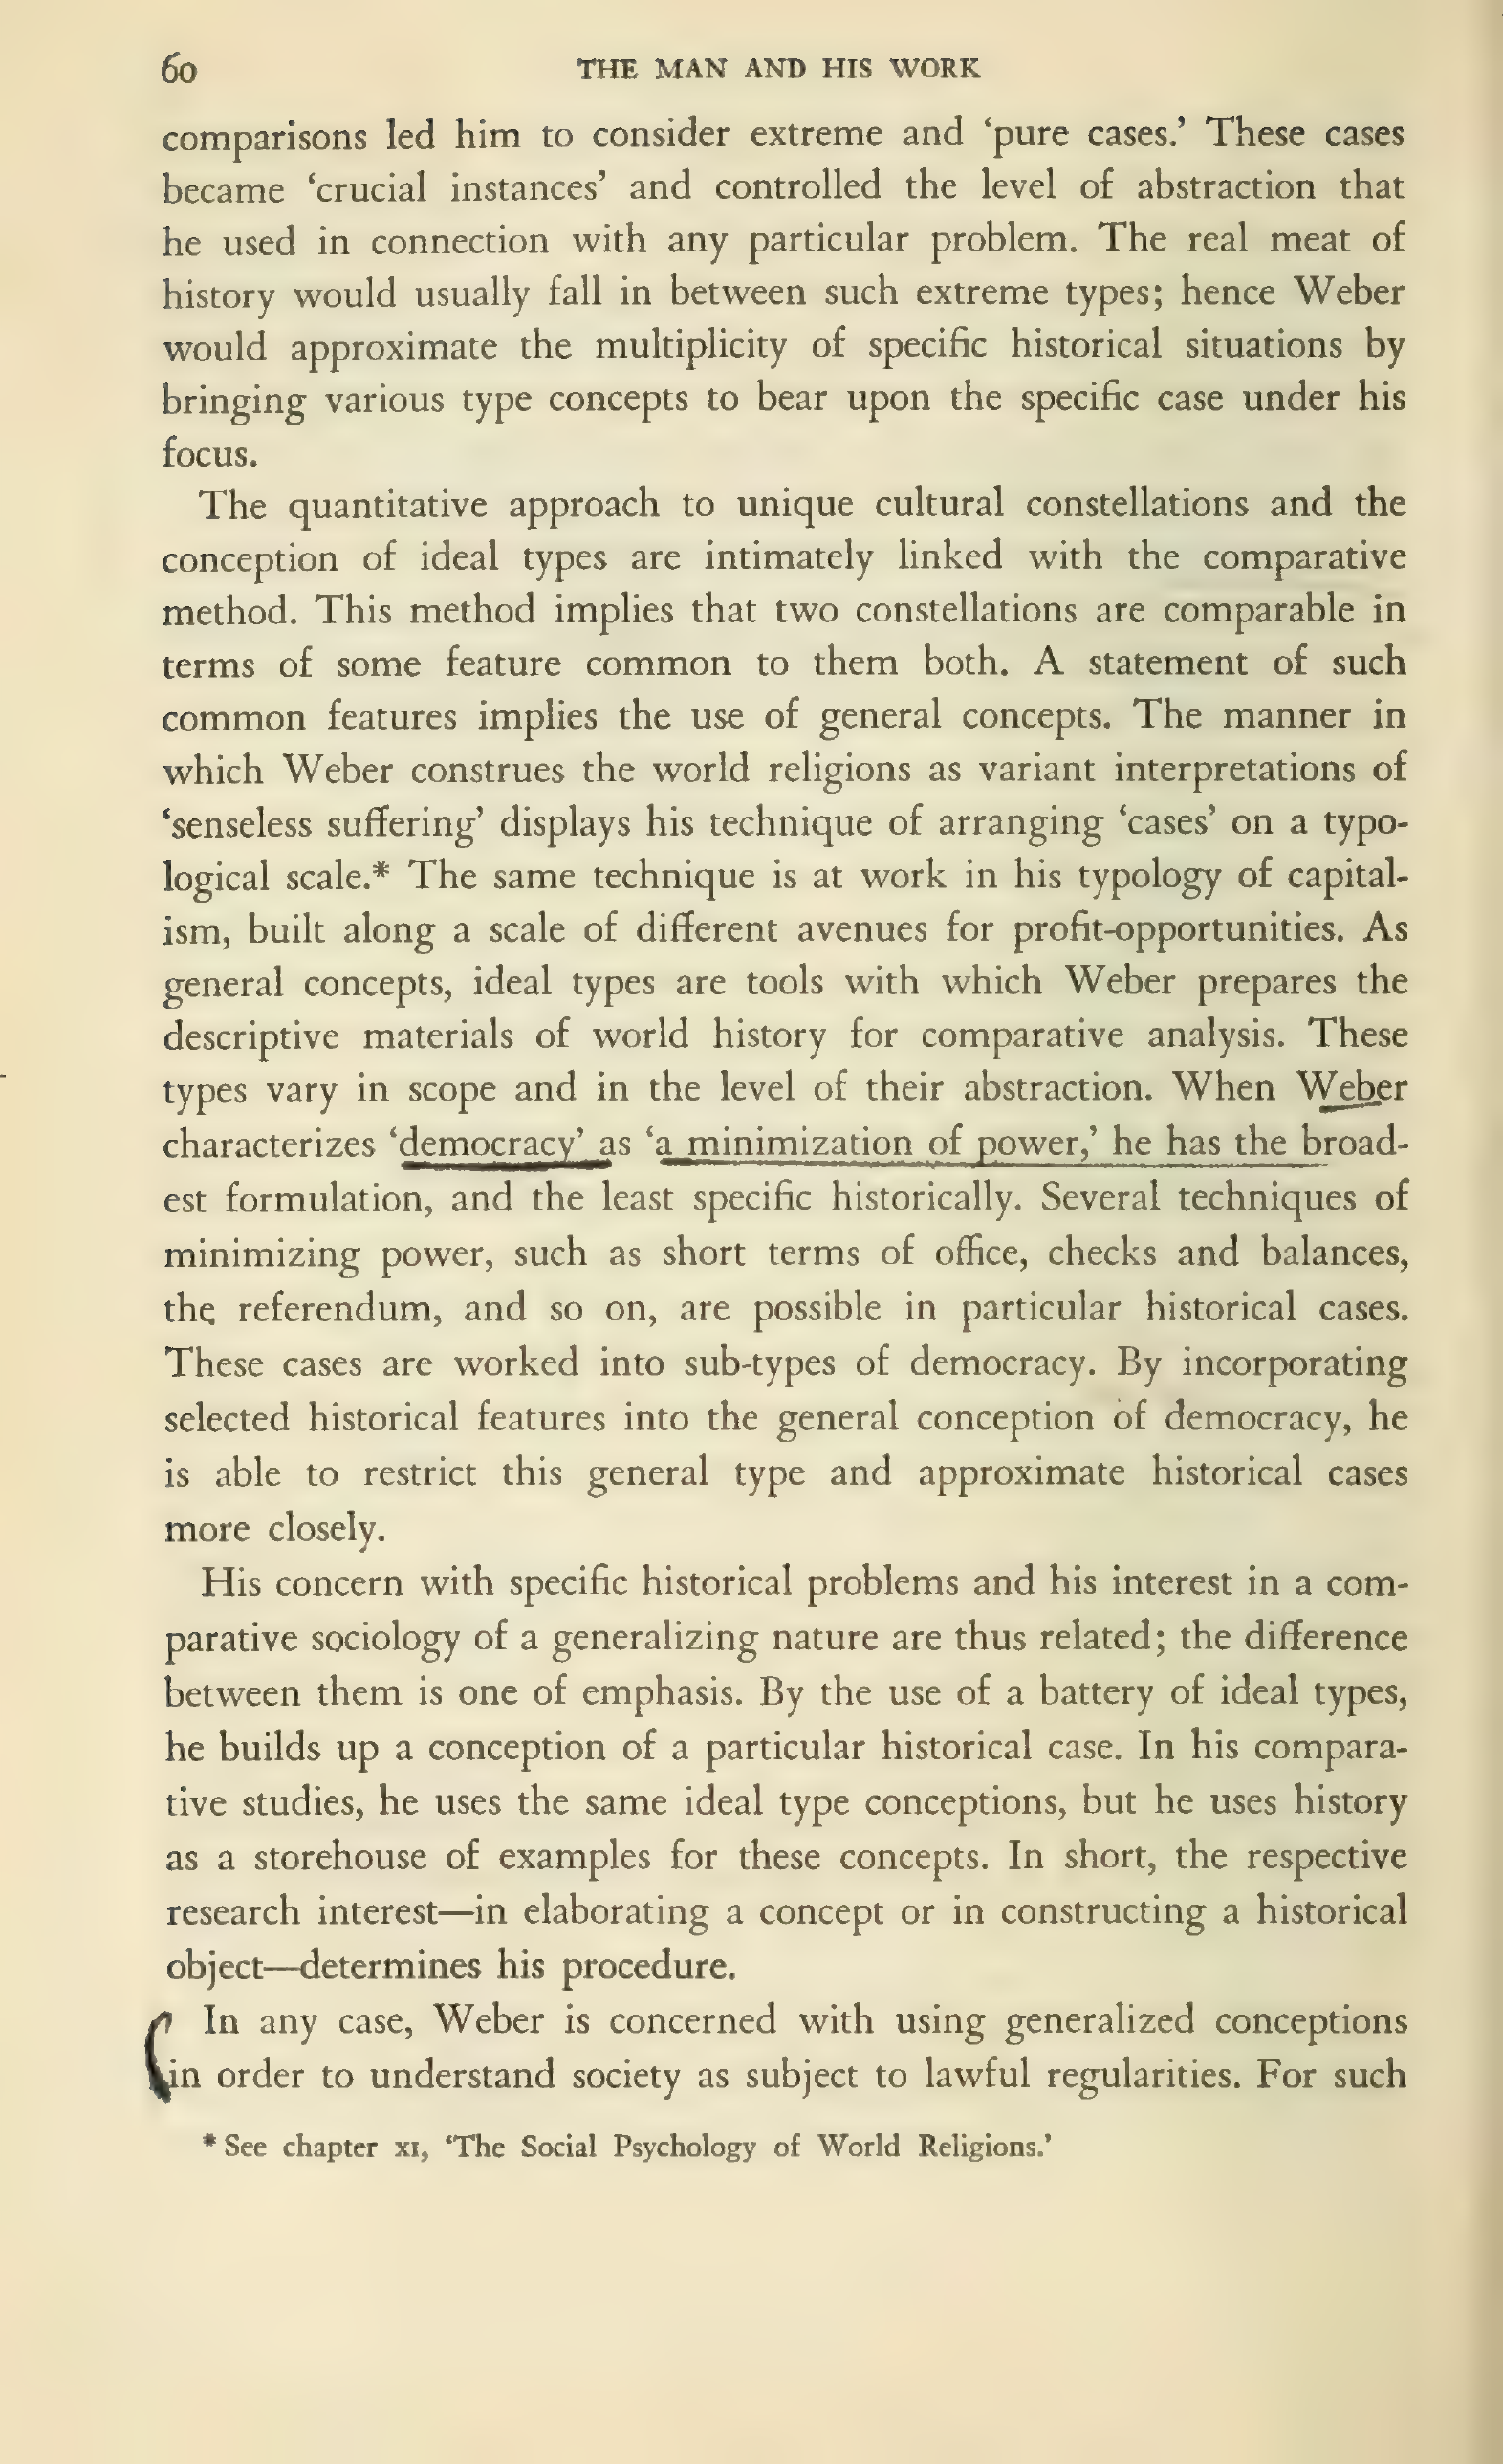 60 THE MAN AND HIS WORK
comparisons led him to consider extreme and ‘pure cases.’ These cases
became ‘crucial instances’ and controlled the level of abstraction that
he used in connection with any particular problem. The real meat of
history would usually fall in between such extreme types; hence Weber
would approximate the multiplicity of specific historical situations by
bringing various type concepts to bear upon the specific case under his
focus.
The quantitative approach to unique cultural constellations and the
conception of ideal types are intimately linked with the comparative
method. This method implies that two constellations are comparable in
terms of some feature common to them both. A statement of such
common features implies the use of general concepts. The manner in
which Weber construes the world religions as variant interpretations of
‘senseless suffering’ displays his technique of arranging ‘cases’ on a typo-
logical scale.* The same technique is at work in his typology of capital-
ism, built along a scale of different avenues for profit-opportunities. As
general concepts, ideal types are tools with which Weber prepares the
descriptive materials of world history for comparative analysis. These
types vary in scope and in the level of their abstraction. When Weber
characterizes ‘democracy’ as ‘a minimization of power,’ he has the broad-
est formulation, and the least specific historically. Several techniques of
minimizing power, such as short terms of office, checks and balances,
the referendum, and so on, are possible in particular historical cases.
These cases are worked into sub-types of democracy. By incorporating
selected historical features into the general conception of democracy, he
is able to restrict this general type and approximate historical cases
more closely.
His concern with specific historical problems and his interest in a com-
parative sociology of a generalizing nature are thus related; the difference
between them is one of emphasis. By the use of a battery of ideal types,
he builds up a conception of a particular historical case. In his compara-
tive studies, he uses the same ideal type conceptions, but he uses history
as a storehouse of examples for these concepts. In short, the respective
research interest—in elaborating a concept or in constructing a historical
object—determines his procedure.
In any case, Weber is concerned with using generalized conceptions
in order to understand society as subject to lawful regularities. For such
* See chapter XI, ‘The Social Psychology of World Religions.’